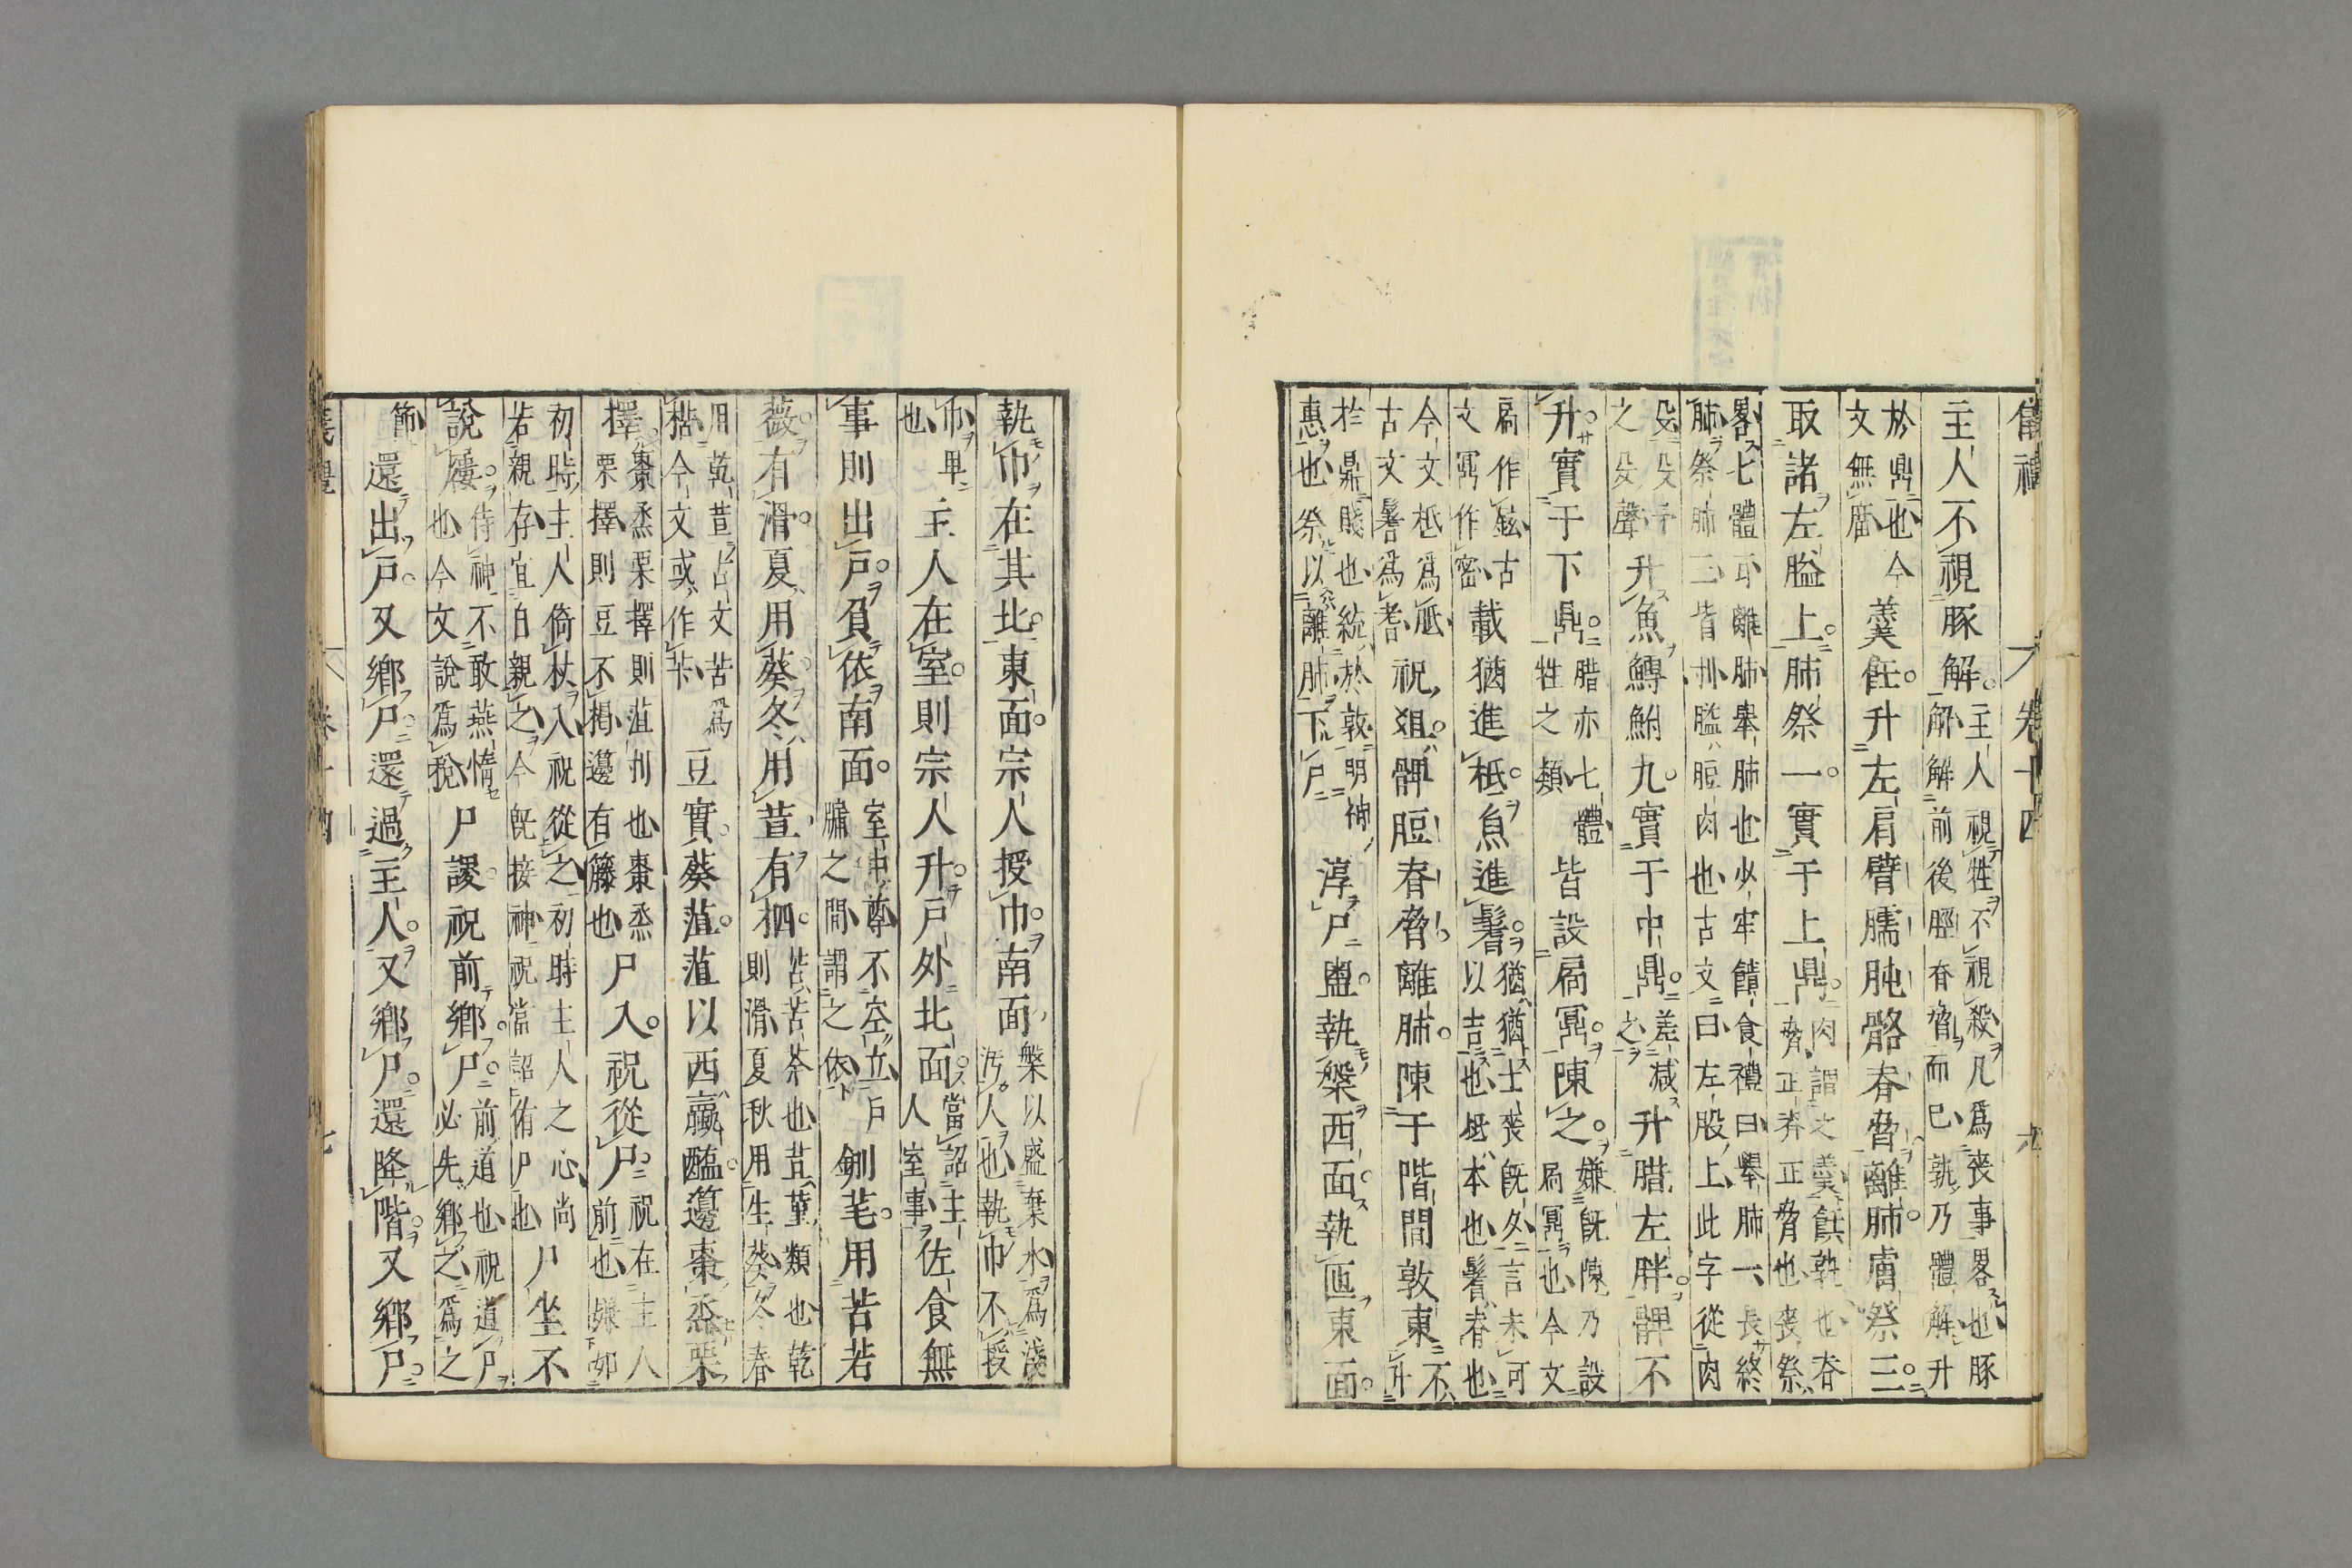 儀禮 卷十四 九
主人不視豚解主人視牲不視殺凡爲喪事畧也豚解解前後脛脊脅而已孰乃體解升
於鼎也今文無廟羹飪升左肩臂臑肫骼脊脅離肺膚祭三
取諸左膉上肺祭一實于上鼎肉謂之羹飪孰也脊脅正脊正脅也喪祭
畧七體耳離肺舉肺也少牢饋食禮曰舉肺一長終肺祭肺三皆刌膉脰肉也古文曰左股上此字從肉
殳殳矛之殳聲升魚鱄鮒九實于中鼎差減之升腊左胖髀不
升實于下鼎腊亦七體牲之類皆設扃鼏陳之嫌旣陳乃設扃鼏也今文
扃作鉉古文鼏作密載猶進柢魚進鬐猶猶士喪旣夕言未可以吉也柢本也鬐脊也
今文柢爲胝古文鬐爲耆祝俎髀脰脊脅離肺陳于階間敦東不升
於鼎賤也統於敦明神惠也祭以離肺下尸淳尸盥執槃西面執匜東面
執巾在其北東面宗人授巾南面槃以盛棄水爲淺汚人也執巾不授
巾卑也主人在室則宗人升戶外北面當詔主人室事佐食無
事則出戶負依南面室中尊不空立戶牖之間謂之依鉶芼用苦若
薇有滑夏用葵冬用荁有柶苦苦荼也荁菫類也乾則滑夏秋用生葵冬春
用乾荁古文苦爲楛今文或作芐豆實葵菹菹以西蠃醢籩棗烝栗
擇棗烝栗擇則菹刌也棗烝栗擇則豆不揭籩有籐也尸入祝從尸祝在主人前也嫌如
初時主人倚杖入祝從之初時主人之心尚若親存宜自親之今旣接神祝當詔侑尸也尸坐不
說屨侍神不敢燕惰也今文說爲稅尸謖祝前鄉尸前道也祝道尸必先鄉之爲之
節還出戶又鄉尸還過主人又鄉尸還降階又鄉尸